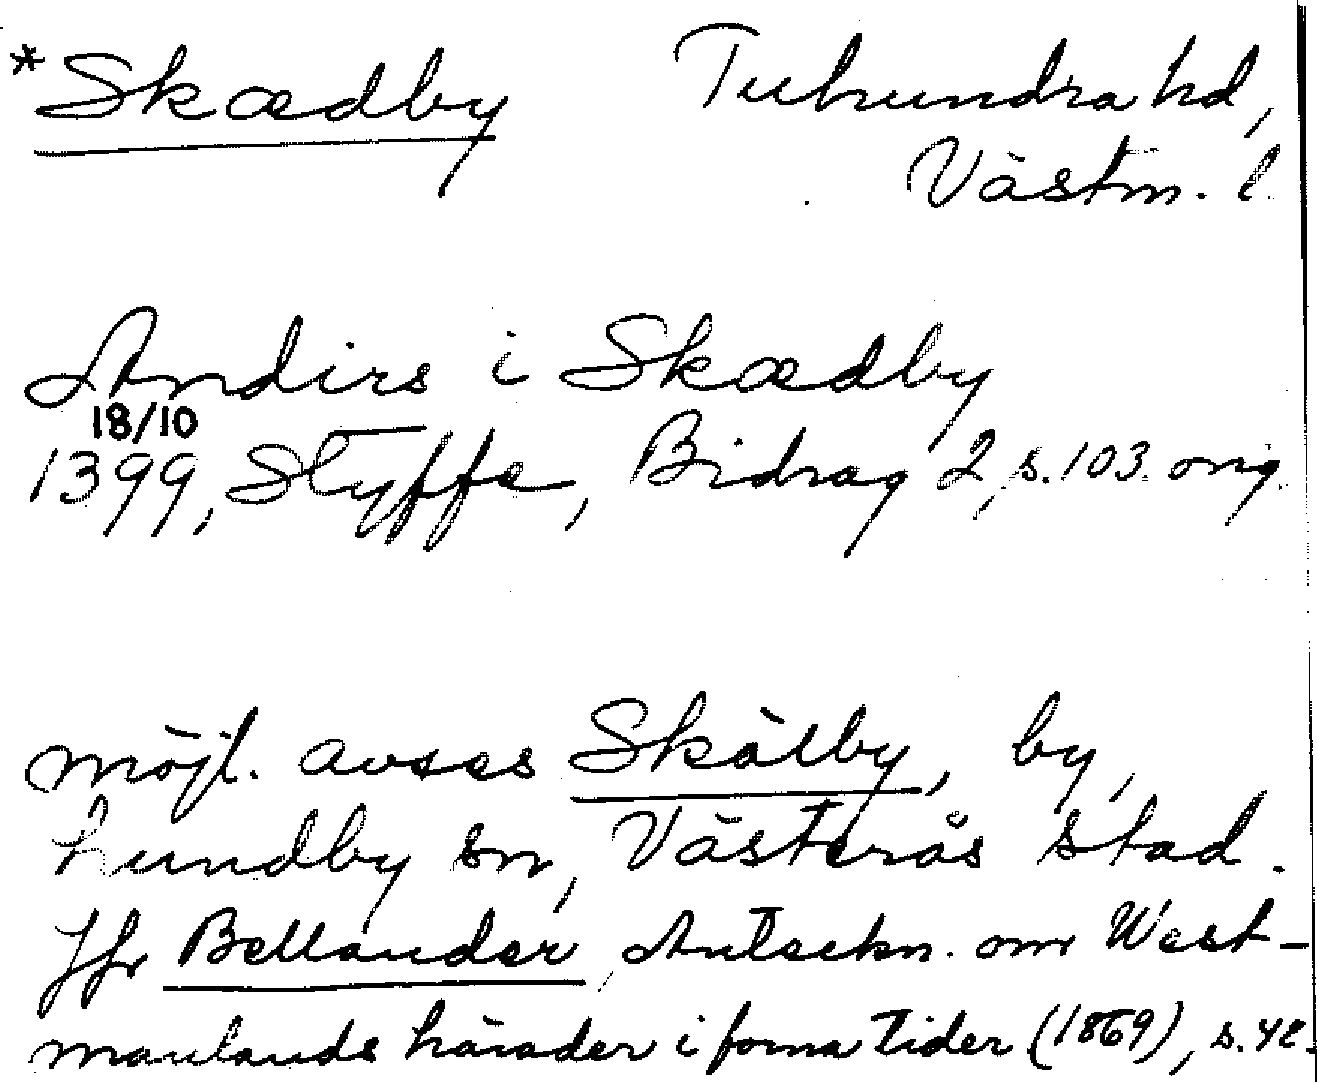 *Skædby Tuhundra hd,
Västm. l.
Andirs i Skædby
18/10
1399, Styffe, Bidrag 2, s. 103. orig.
möjl. avses Skälby, by,
Lundby sn, Västerås stad.
Jfr Bellander, Anteckn. om West-
manlands härader i forna tider (1869), s.